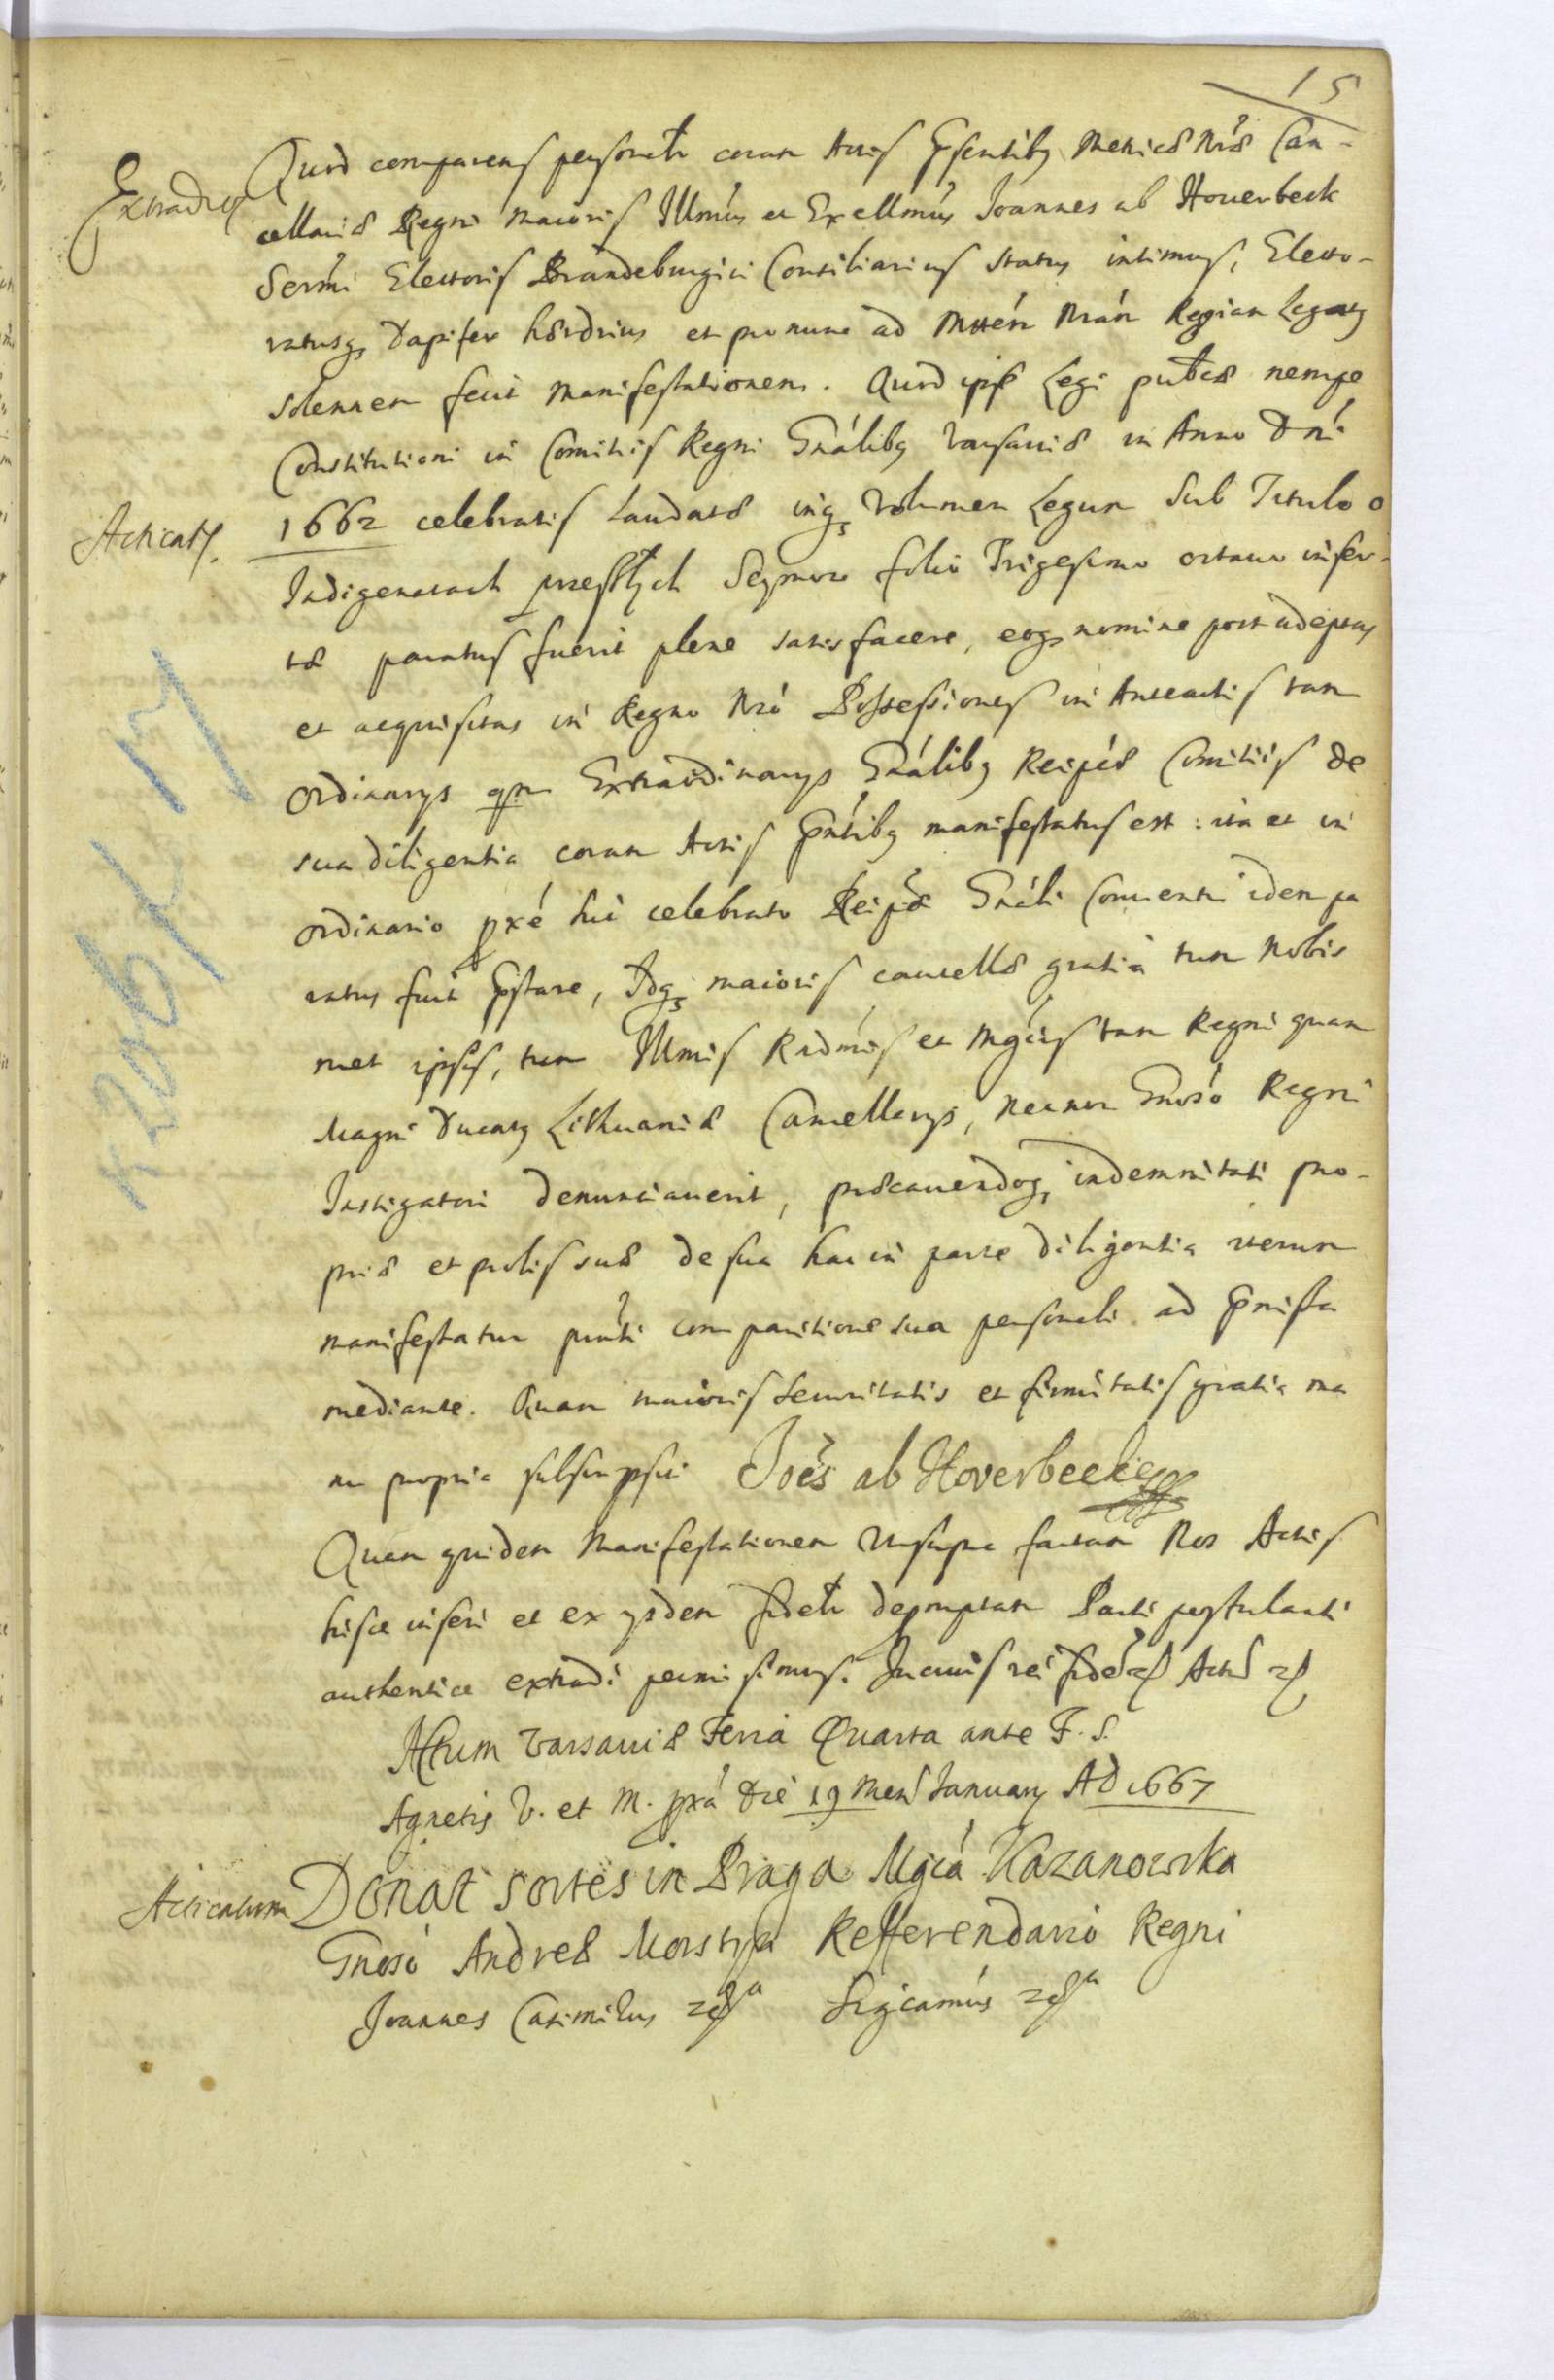 15
Extradit
Quod comparens personalr coram Actis Pntibq Metricæ Nræ Can-
cellariæ Regni Maioris Illmus et Excellmus Joannes ab Houerbeck
Sermi Electoris Brandeburgici Consiliarius status intimus, Electo-
ratusq Dapifer hærdrius et pro nunc ad Mttem Nram Regiam Legatq
solennem fecit manifestationem. Quod ipse Legi publcæ nempe
Constitutioni in Comitiis Regni Gnalibq Varsauiæ in Anno Dni
Acticatq.
1662 celebratis laudatæ inq Volumen Legum Sub Titulo o
Indigenatach przeszłych Seymow folio Trigesimo octauo inser-
tæ paratus fuerit plene satisfacere, eoq nomine post adeptas
et acquisitas in Regno Nro Possessiones in Anteactis tam
ordinarys qm Extraordinarys Gnalibq Reipcæ Comitiis de
sua diligentia coram Actis Pntibq manifestatus est: ita et in
ordinario pxe hic celebrato Reipcæ Gnali Conuentu idem pa
ratus fuit Pstare, Idq maioris cautellæ gratia tum Nobis
met ipsis, tum Illmis Rndmis et Mgcis tam Regni quam
Magni Ducatq Lithuaniæ Cancellarys, necnon Gnoso Regni
Instigatori denuntiauerit, præcauendoq indemnitati pro-
priæ et prolis suæ de sua hac in parte diligentia iterum
manifestatur pnti comparitione sua personali ad Pmissa
mediante. Quam maioris securitatis et firmitatis gratia ma
nu propria subscripsit Joes ab Hoverbeeke
Quam quidem Manifestationem Vtsupra factam Nos Actis
hisce inseri et ex ysdem fidelr depromptam Parti postulanti
authentice extradi permisimus. In cuius rei fidem Act
Actum Varsauiæ Feria Quarta ante F. S.
Agnetis V. et M. pxa Die 19 Mens January AD 1667
Acticatum
Donat sortes in Praga Mgca Kazanowska
Gnoso Andreæ Morstyn Refferendario Regni
K 206 k 17
Joannes Casimirus Significamus